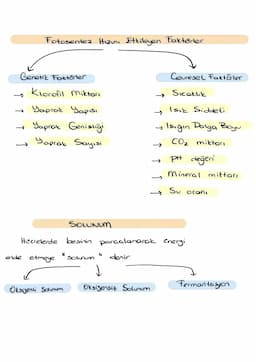 Fotosentez Hızını Etkileyen Faktörler
Genetik Faktörler
→ Klorofil Miktarı
→ Yaprak Yapısı
→ Yaprak Genişliği
→ Yaprak Sayısı
Çevresel Faktörler
→ Sıcaklık
→ Işık Şiddeti
→ Işığın Dalga Boyu
→ CO₂ miktarı
→ pH değeri
→ Mineral miktarı
→ Su oranı
SOLUNUM
Hücrelerde besinin parçalanarak enerji
elde etmeye "solunum" denir
Oksijenli Solunum
Oksijensiz Solunum
Fermantasyon